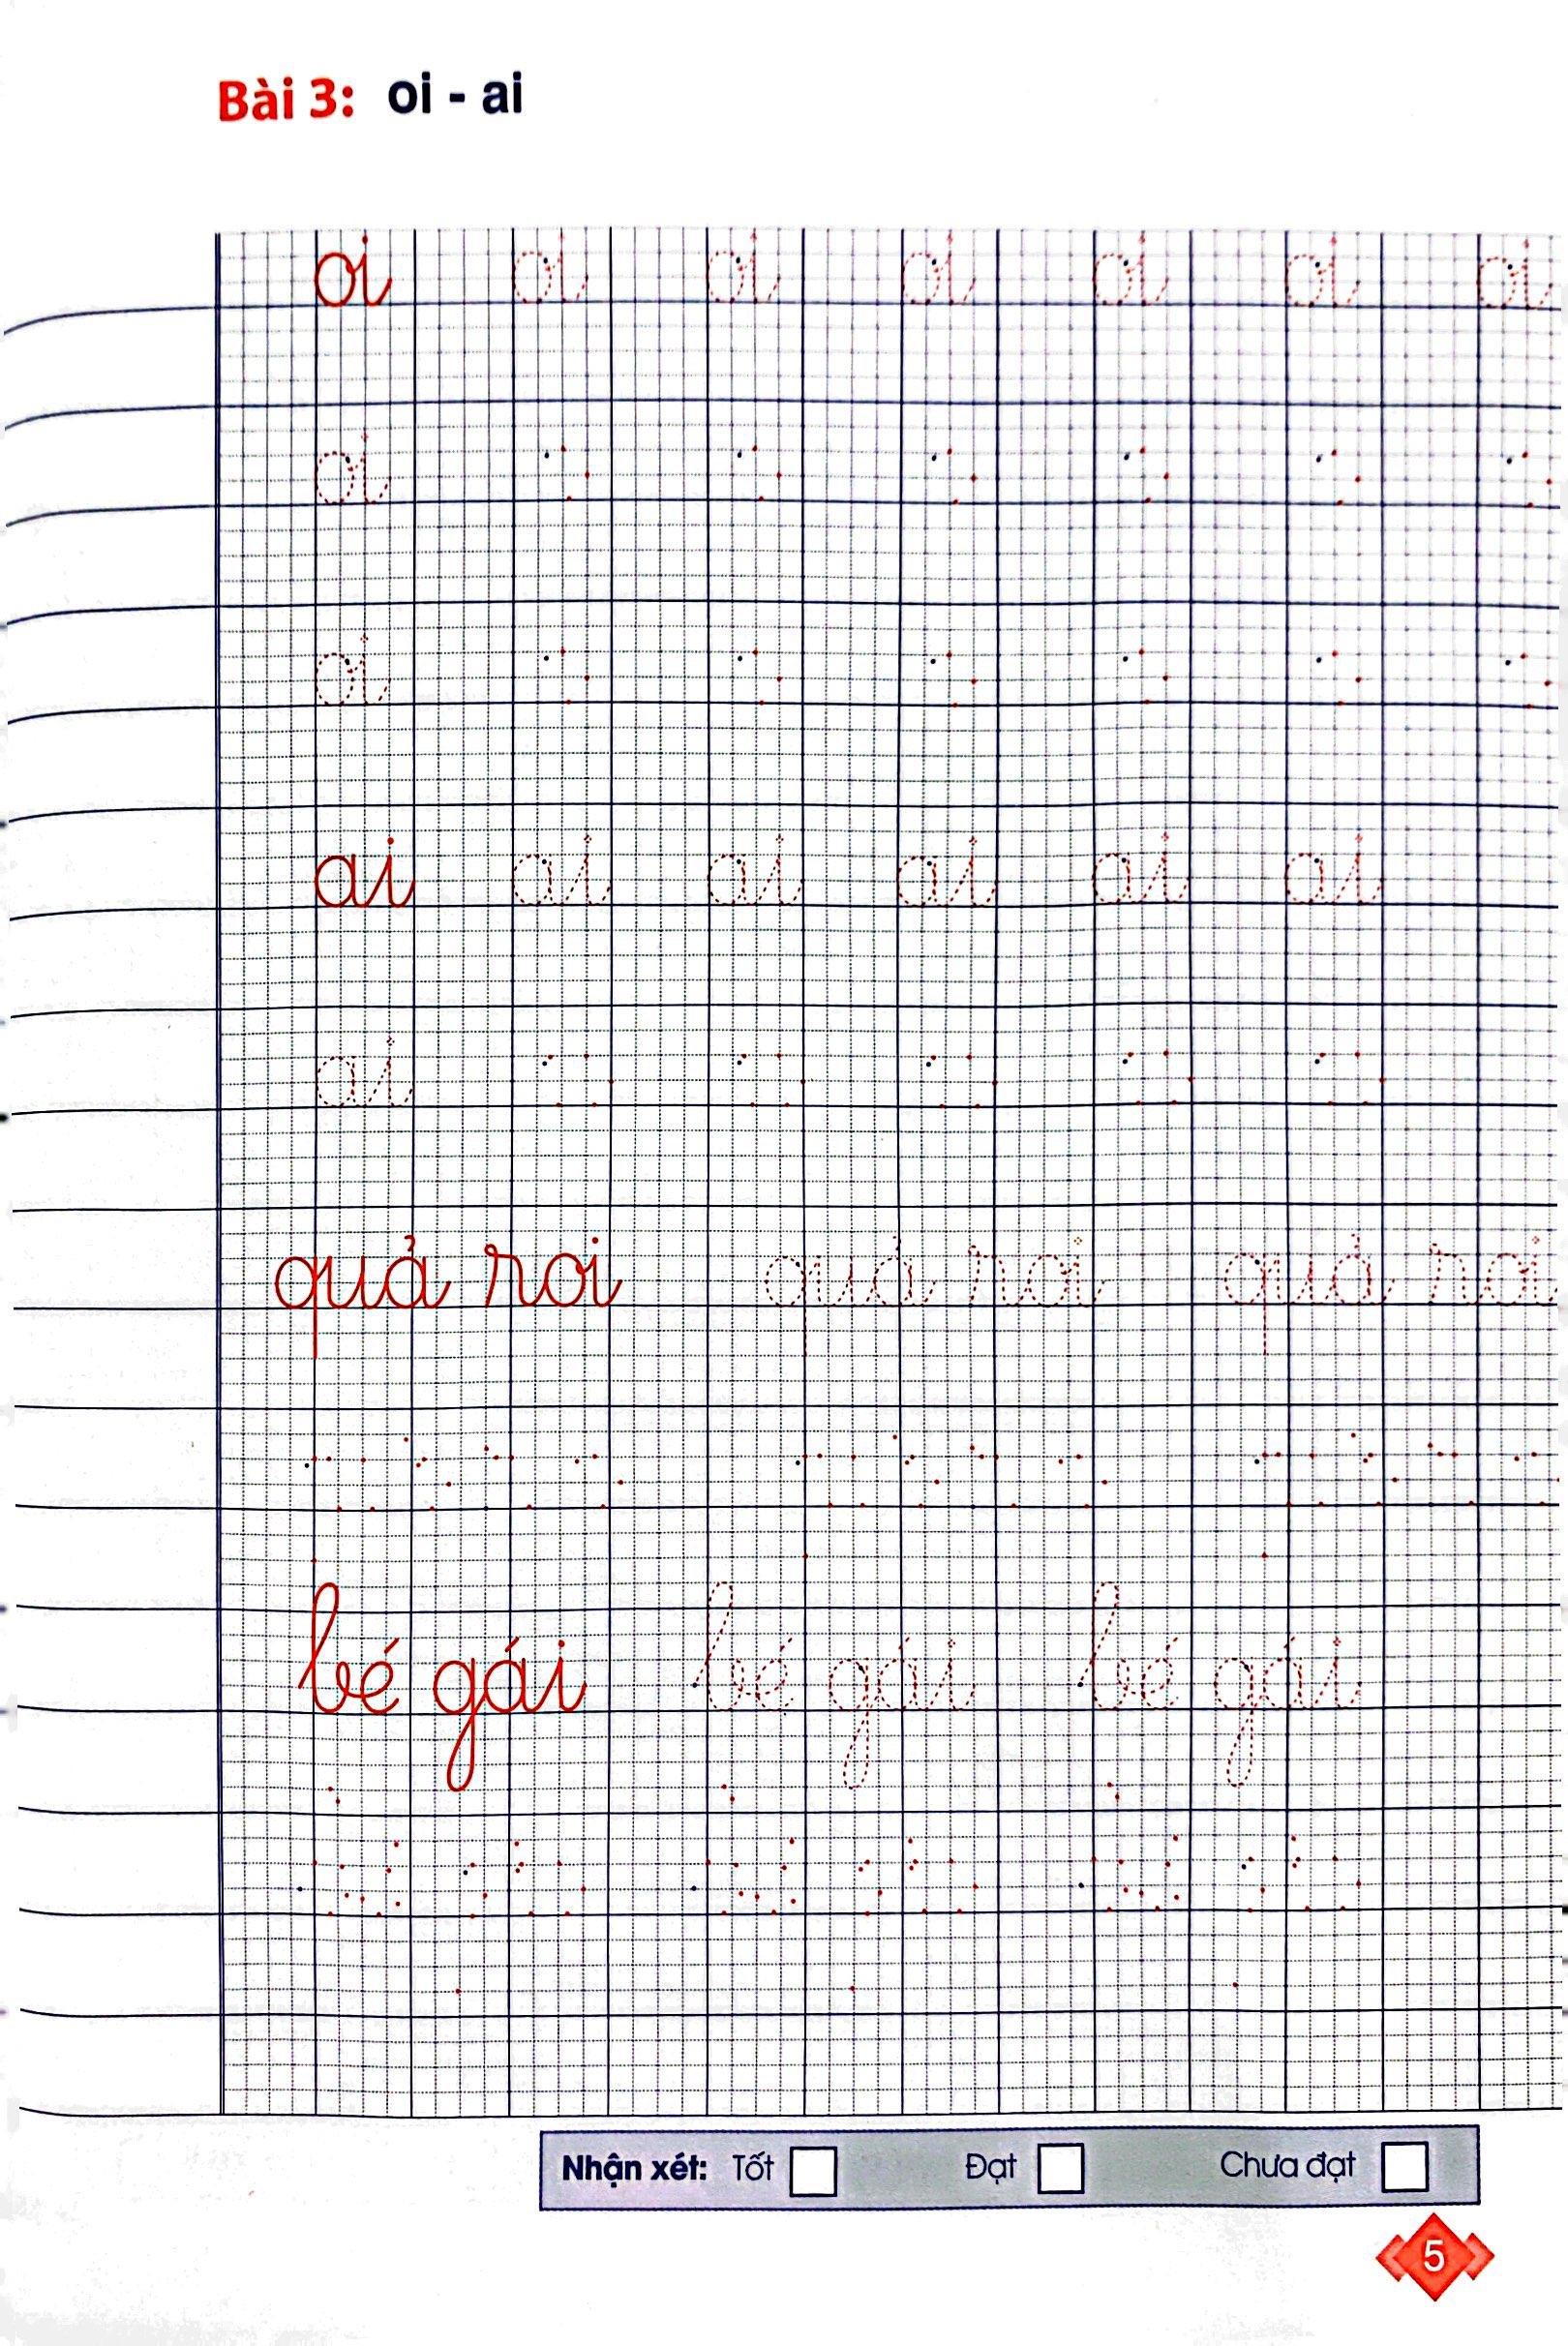 Bài 3: oi - ai
oi oi oi oi oi oi oi
oi
oi
ai ai ai ai ai ai
ai
quả roi quả roi quả roi
bé gái bé gái bé gái
Nhận xét: Tốt Đạt Chưa đạt
5